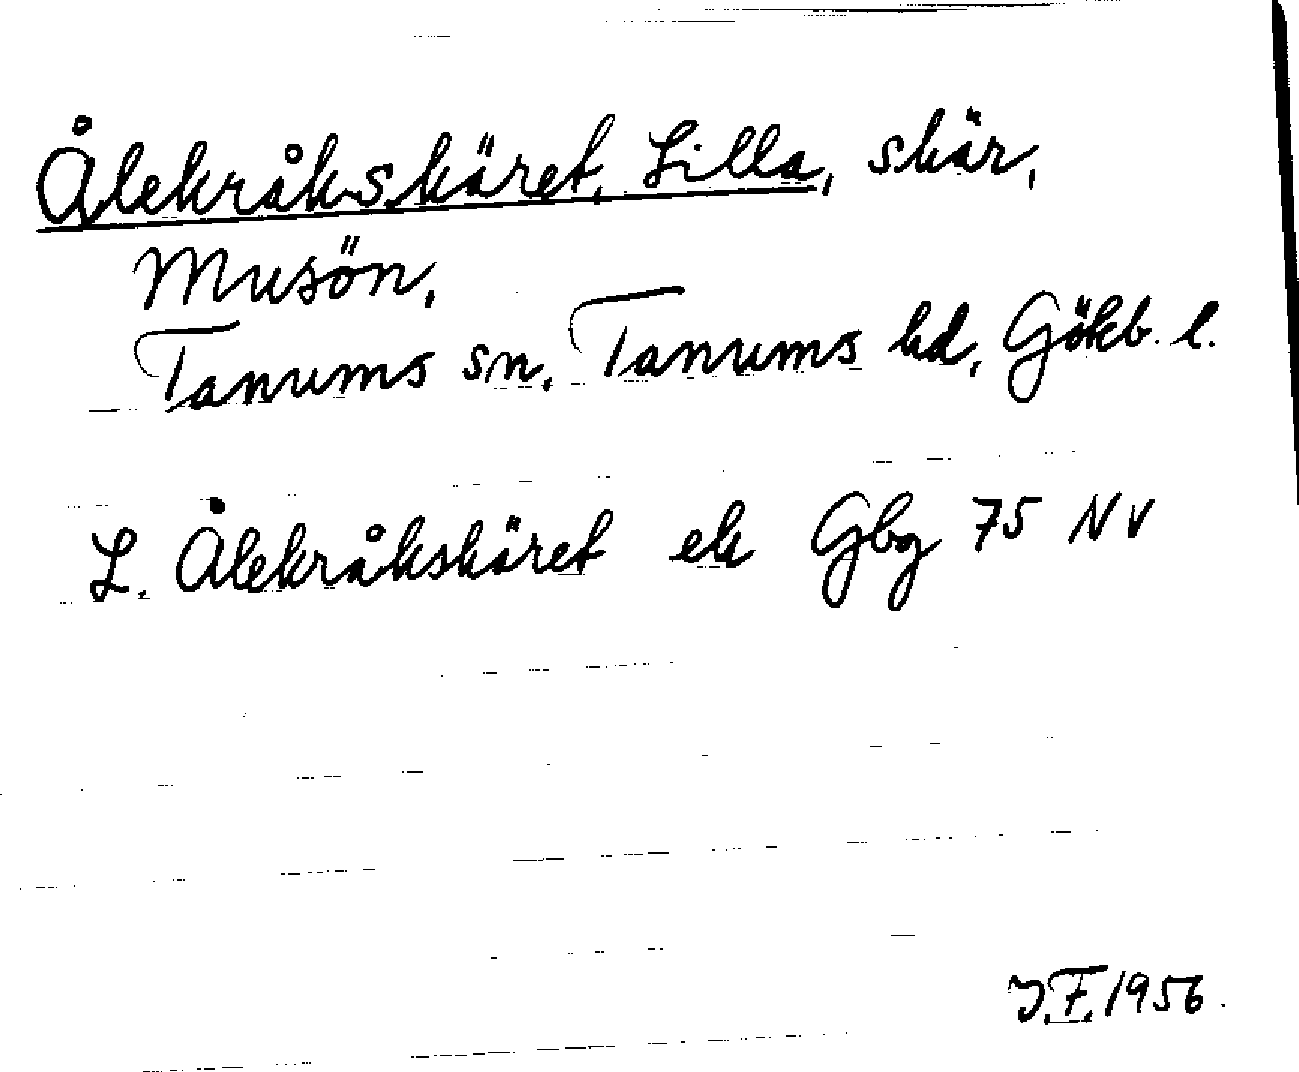 Ålekråkskäret, Lilla, skär,
Musön,
Tanums sn, Tanums hd, Gökb. l.
L. Ålekråkskäret ek Gbg 75 NV
J.F. 1956.